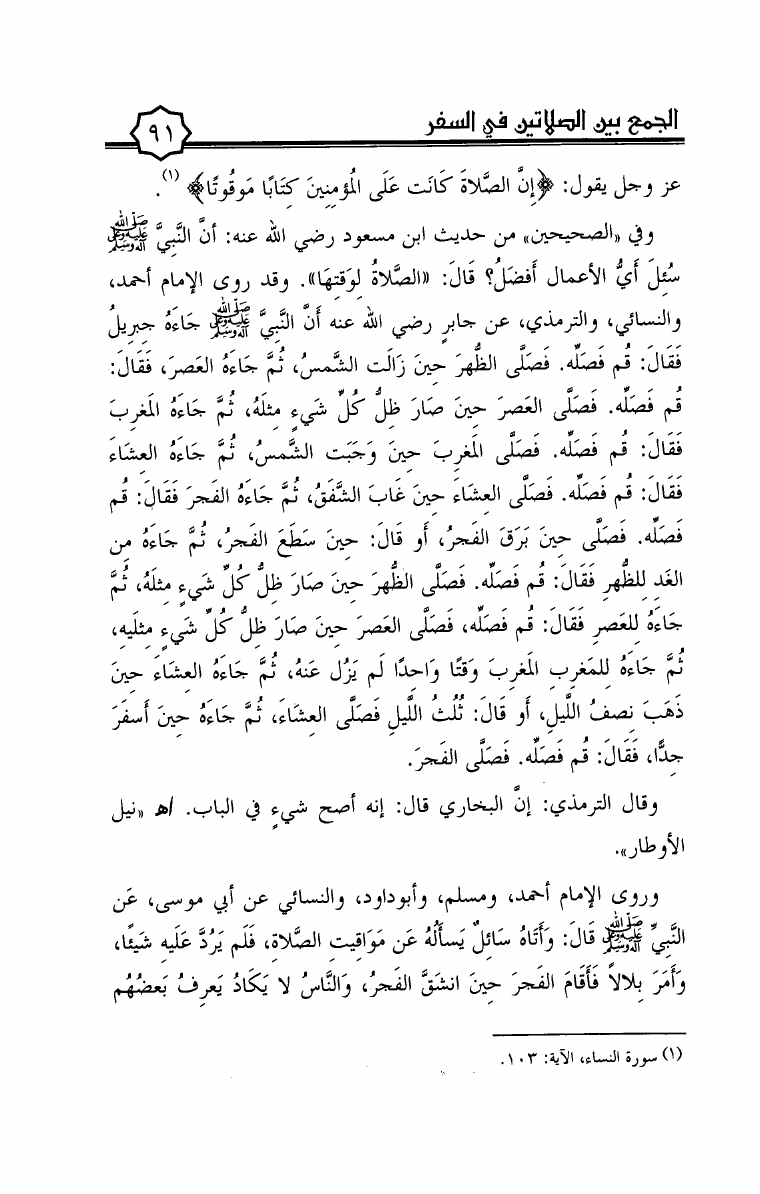 الجمع بين الصلاتين في السفر
٩١
عز وجل يقول: ﴿إِنَّ الصَّلاةَ كَانَت عَلَى المُؤمِنِينَ كِتَابًا مَوقُوتًا﴾ (١).
وفي «الصحيحين» من حديث ابن مسعود رضي الله عنه: أَنَّ النَّبِيَّ ﷺ
سُئِلَ أَيُّ الأعمال أَفضَلُ؟ قَالَ: «الصَّلاةُ لِوَقتِهَا». وقد روى الإمام أحمد،
والنسائي، والترمذي، عن جابرٍ رضي الله عنه أَنَّ النَّبِيَّ ﷺ جَاءَهُ جبريلُ
فَقَالَ: قُم فَصَلِّه. فَصَلَّى الظُّهرَ حِينَ زَالَت الشَّمسُ، ثُمَّ جَاءَهُ العَصرَ، فَقَالَ:
قُم فَصَلِّه. فَصَلَّى العَصرَ حِينَ صَارَ ظِلُّ كُلِّ شَيءٍ مِثلَهُ، ثُمَّ جَاءَهُ المَغرِبَ
فَقَالَ: قُم فَصَلِّه. فَصَلَّى المَغرِبَ حِينَ وَجَبَت الشَّمسُ، ثُمَّ جَاءَهُ العِشَاءَ
فَقَالَ: قُم فَصَلِّه. فَصَلَّى العِشَاءَ حِينَ غَابَ الشَّفَقُ، ثُمَّ جَاءَهُ الفَجرَ فَقَالَ: قُم
فَصَلِّه. فَصَلَّى حِينَ بَرَقَ الفَجرُ، أَو قَالَ: حِينَ سَطَعَ الفَجرُ، ثُمَّ جَاءَهُ من
الغَدِ لِلظُّهرِ فَقَالَ: قُم فَصَلِّه. فَصَلَّى الظُّهرَ حِينَ صَارَ ظِلُّ كُلِّ شَيءٍ مِثلَهُ، ثُمَّ
جَاءَهُ لِلعَصرِ فَقَالَ: قُم فَصَلِّه، فَصَلَّى العَصرَ حِينَ صَارَ ظِلُّ كُلِّ شَيءٍ مِثلَيهِ،
ثُمَّ جَاءَهُ لِلمَغرِبِ المَغرِبَ وَقتًا وَاحِدًا لَم يَزُل عَنهُ، ثُمَّ جَاءَهُ العِشَاءَ حِينَ
ذَهَبَ نِصفُ اللَّيلِ، أَو قَالَ: ثُلُثُ اللَّيلِ فَصَلَّى العِشَاءَ، ثُمَّ جَاءَهُ حِينَ أَسفَرَ
جِدًّا، فَقَالَ: قُم فَصَلِّه. فَصَلَّى الفَجرَ.
وقال الترمذي: إنَّ البخاري قال: إنه أصح شيءٍ في الباب. اهـ «نيل
الأوطار».
وروى الإمام أحمد، ومسلم، وأبوداود، والنسائي عن أبي موسى، عَن
النَّبِيِّ ﷺ قَالَ: وَأَتَاهُ سَائِلٌ يَسأَلُهُ عَن مَوَاقِيتِ الصَّلاةِ، فَلَم يَرُدَّ عَلَيهِ شَيئًا،
وَأَمَرَ بِلالاً فَأَقَامَ الفَجرَ حِينَ انشَقَّ الفَجرُ، وَالنَّاسُ لا يَكَادُ يَعرِفُ بَعضُهُم
(١) سورة النساء، الآية: ١٠٣.